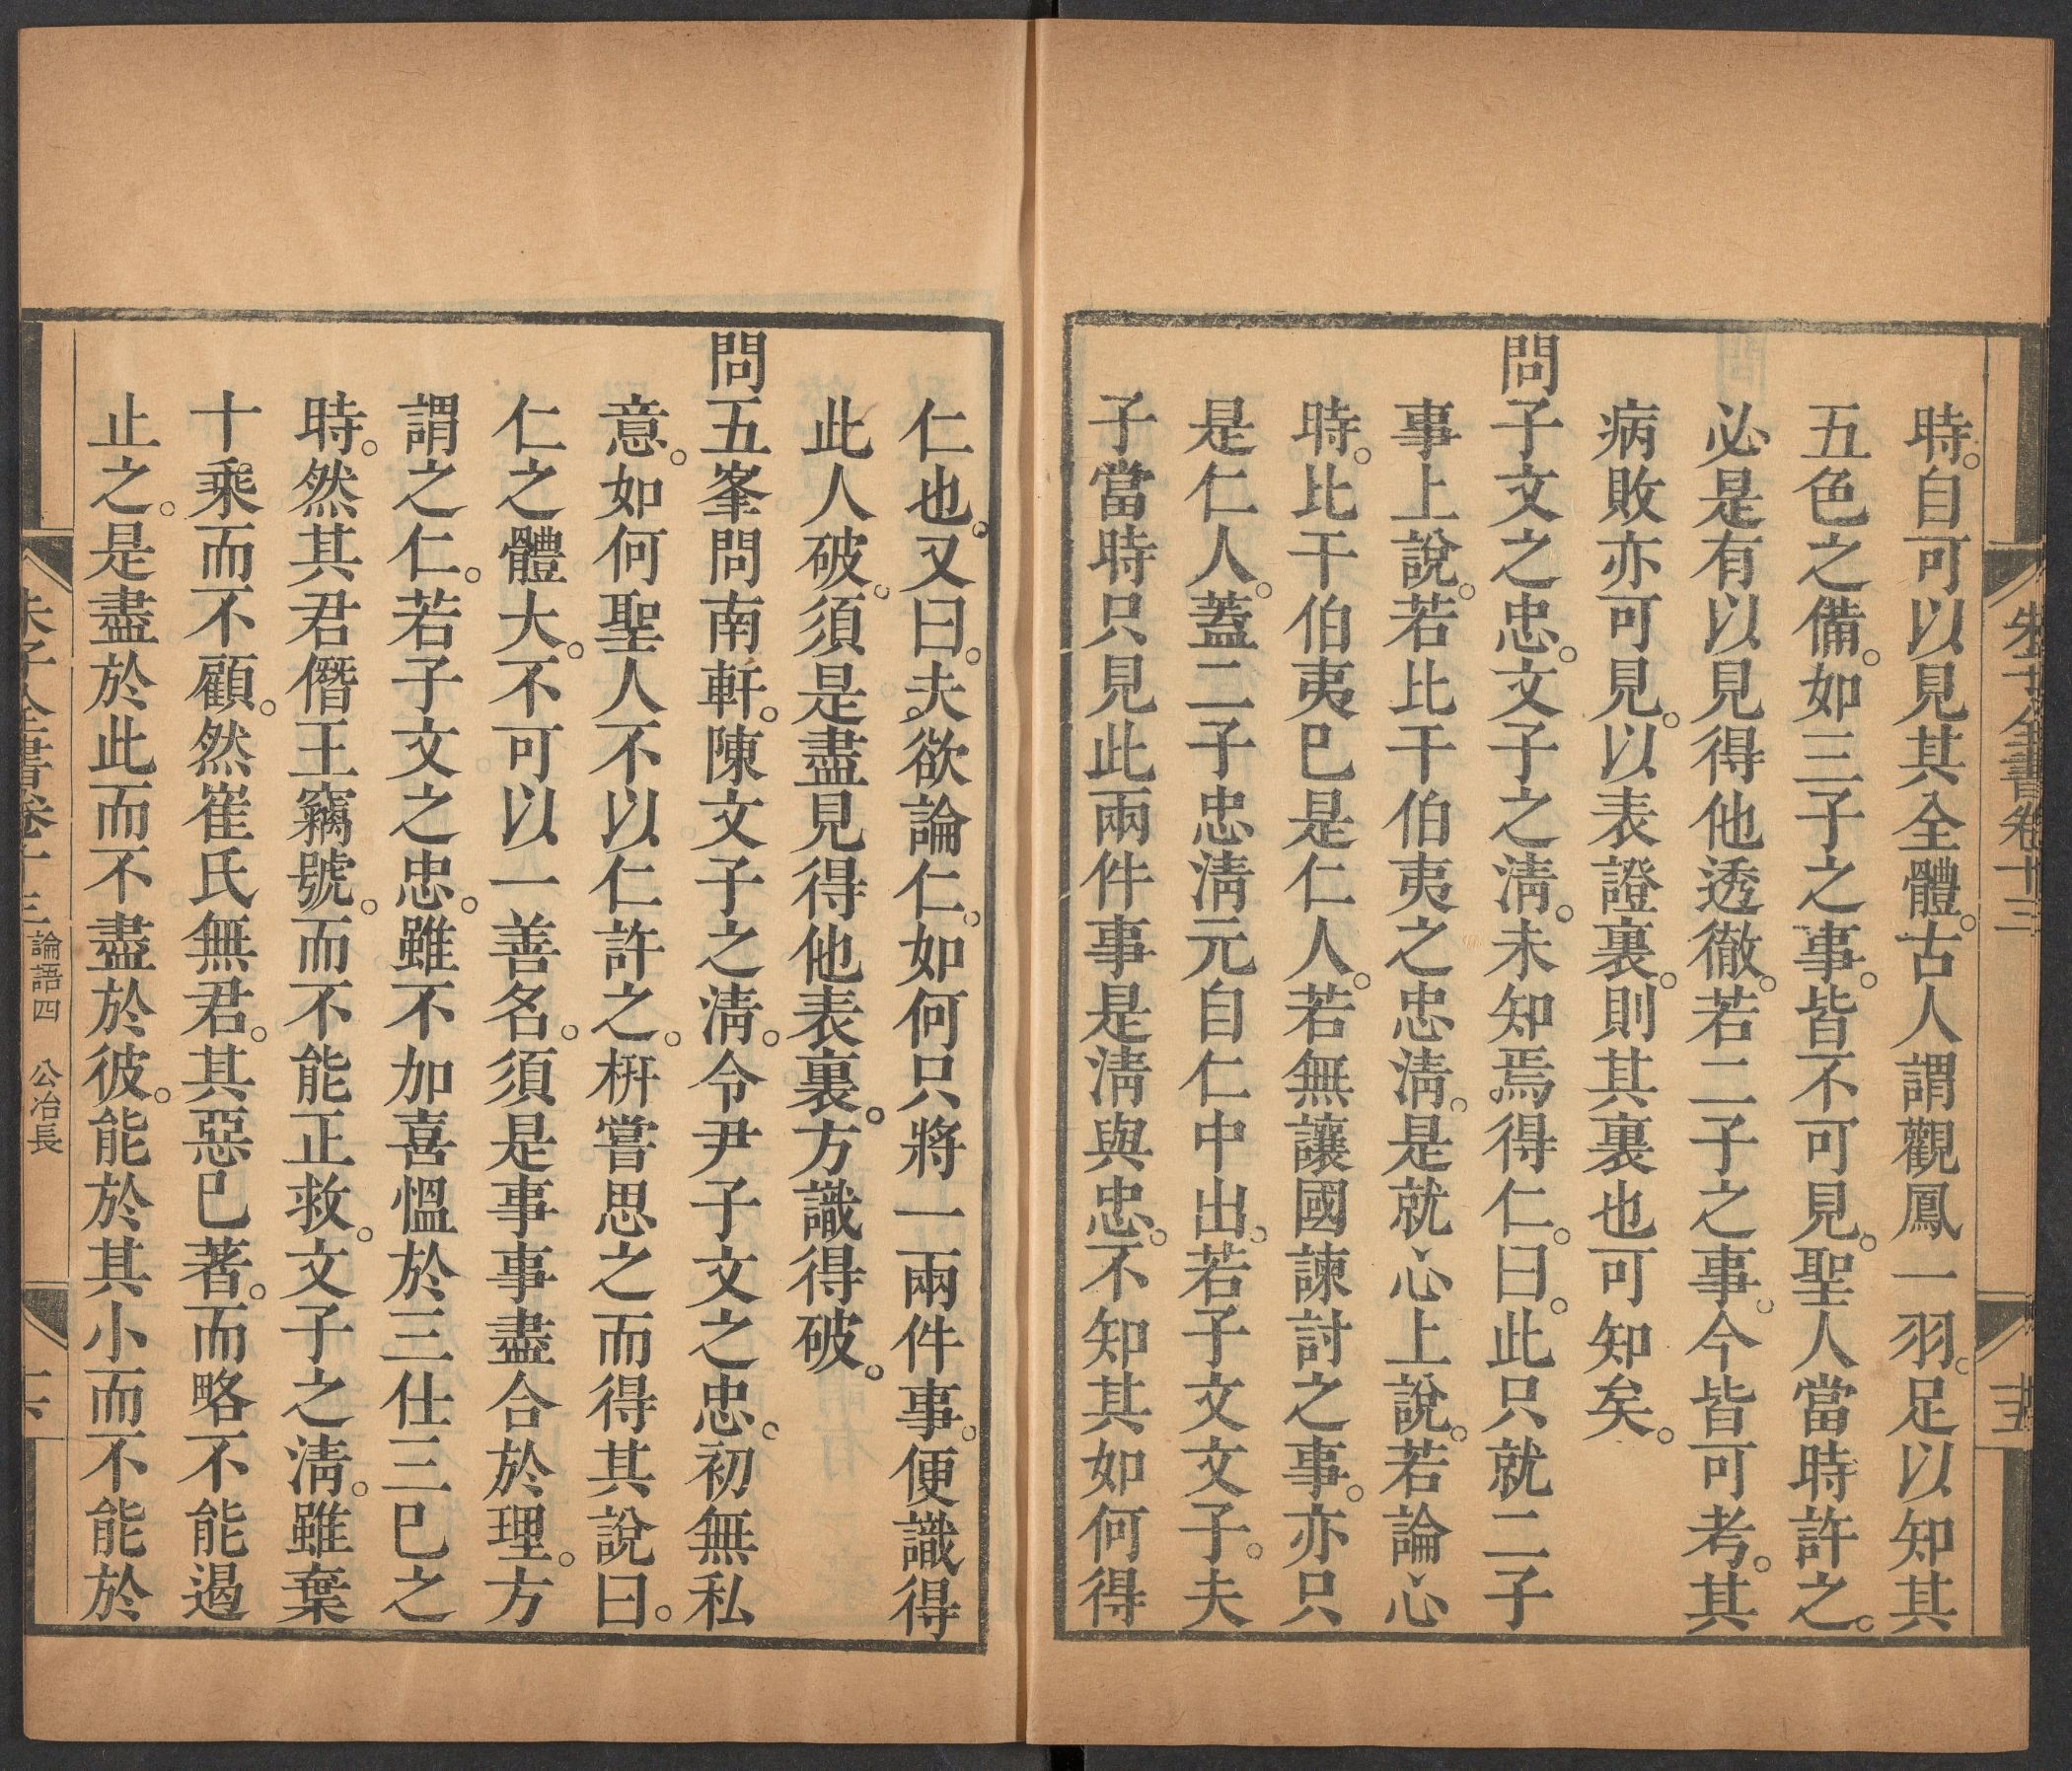 時。自可以見其全體。古人謂觀鳳一羽。足以知其
五色之備。如三子之事。皆不可見。聖人當時許之。
必是有以見得他透徹。若二子之事。今皆可考。其
病敗亦可見。以表證裏。則其裏也可知矣。
問子文之忠。文子之淸。未知焉得仁。曰。此只就二子
事上說。若比干伯夷之忠淸。是就心上說。若論心
時。比干伯夷已是仁人。若無讓國諫討之事。亦只
是仁人。蓋二子忠淸元自仁中出。若子文文子。夫
子當時只見此兩件事是淸與忠。不知其如何得
仁也。又曰。夫欲論仁。如何只將一兩件事。便識得
此人破。須是盡見得他表裏。方識得破。
問五峯問南軒。陳文子之淸。令尹子文之忠。初無私
意。如何聖人不以仁許之。枅嘗思之而得其說曰。
仁之體大。不可以一善名。須是事事盡合於理。方
謂之仁。若子文之忠。雖不加喜慍於三仕三已之
時。然其君僭王竊號。而不能正救。文子之淸。雖棄
十乘而不顧。然崔氏無君。其惡已著。而略不能遏
止之。是盡於此而不盡於彼。能於其小而不能於
朱子全書卷十三 論語四 公冶長